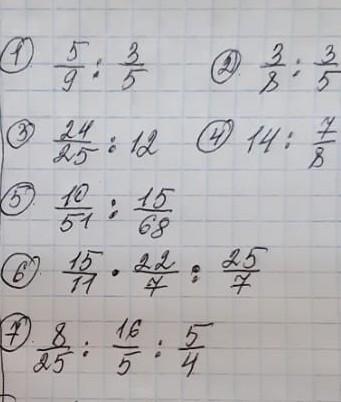 ① 5/9 : 3/5 ② 3/8 : 3/5
③ 24/25 : 12 ④ 14 : 7/8
⑤ 10/51 : 15/68
⑥ 15/11 · 22/7 : 25/7
⑦ 8/25 : 16/5 : 5/4